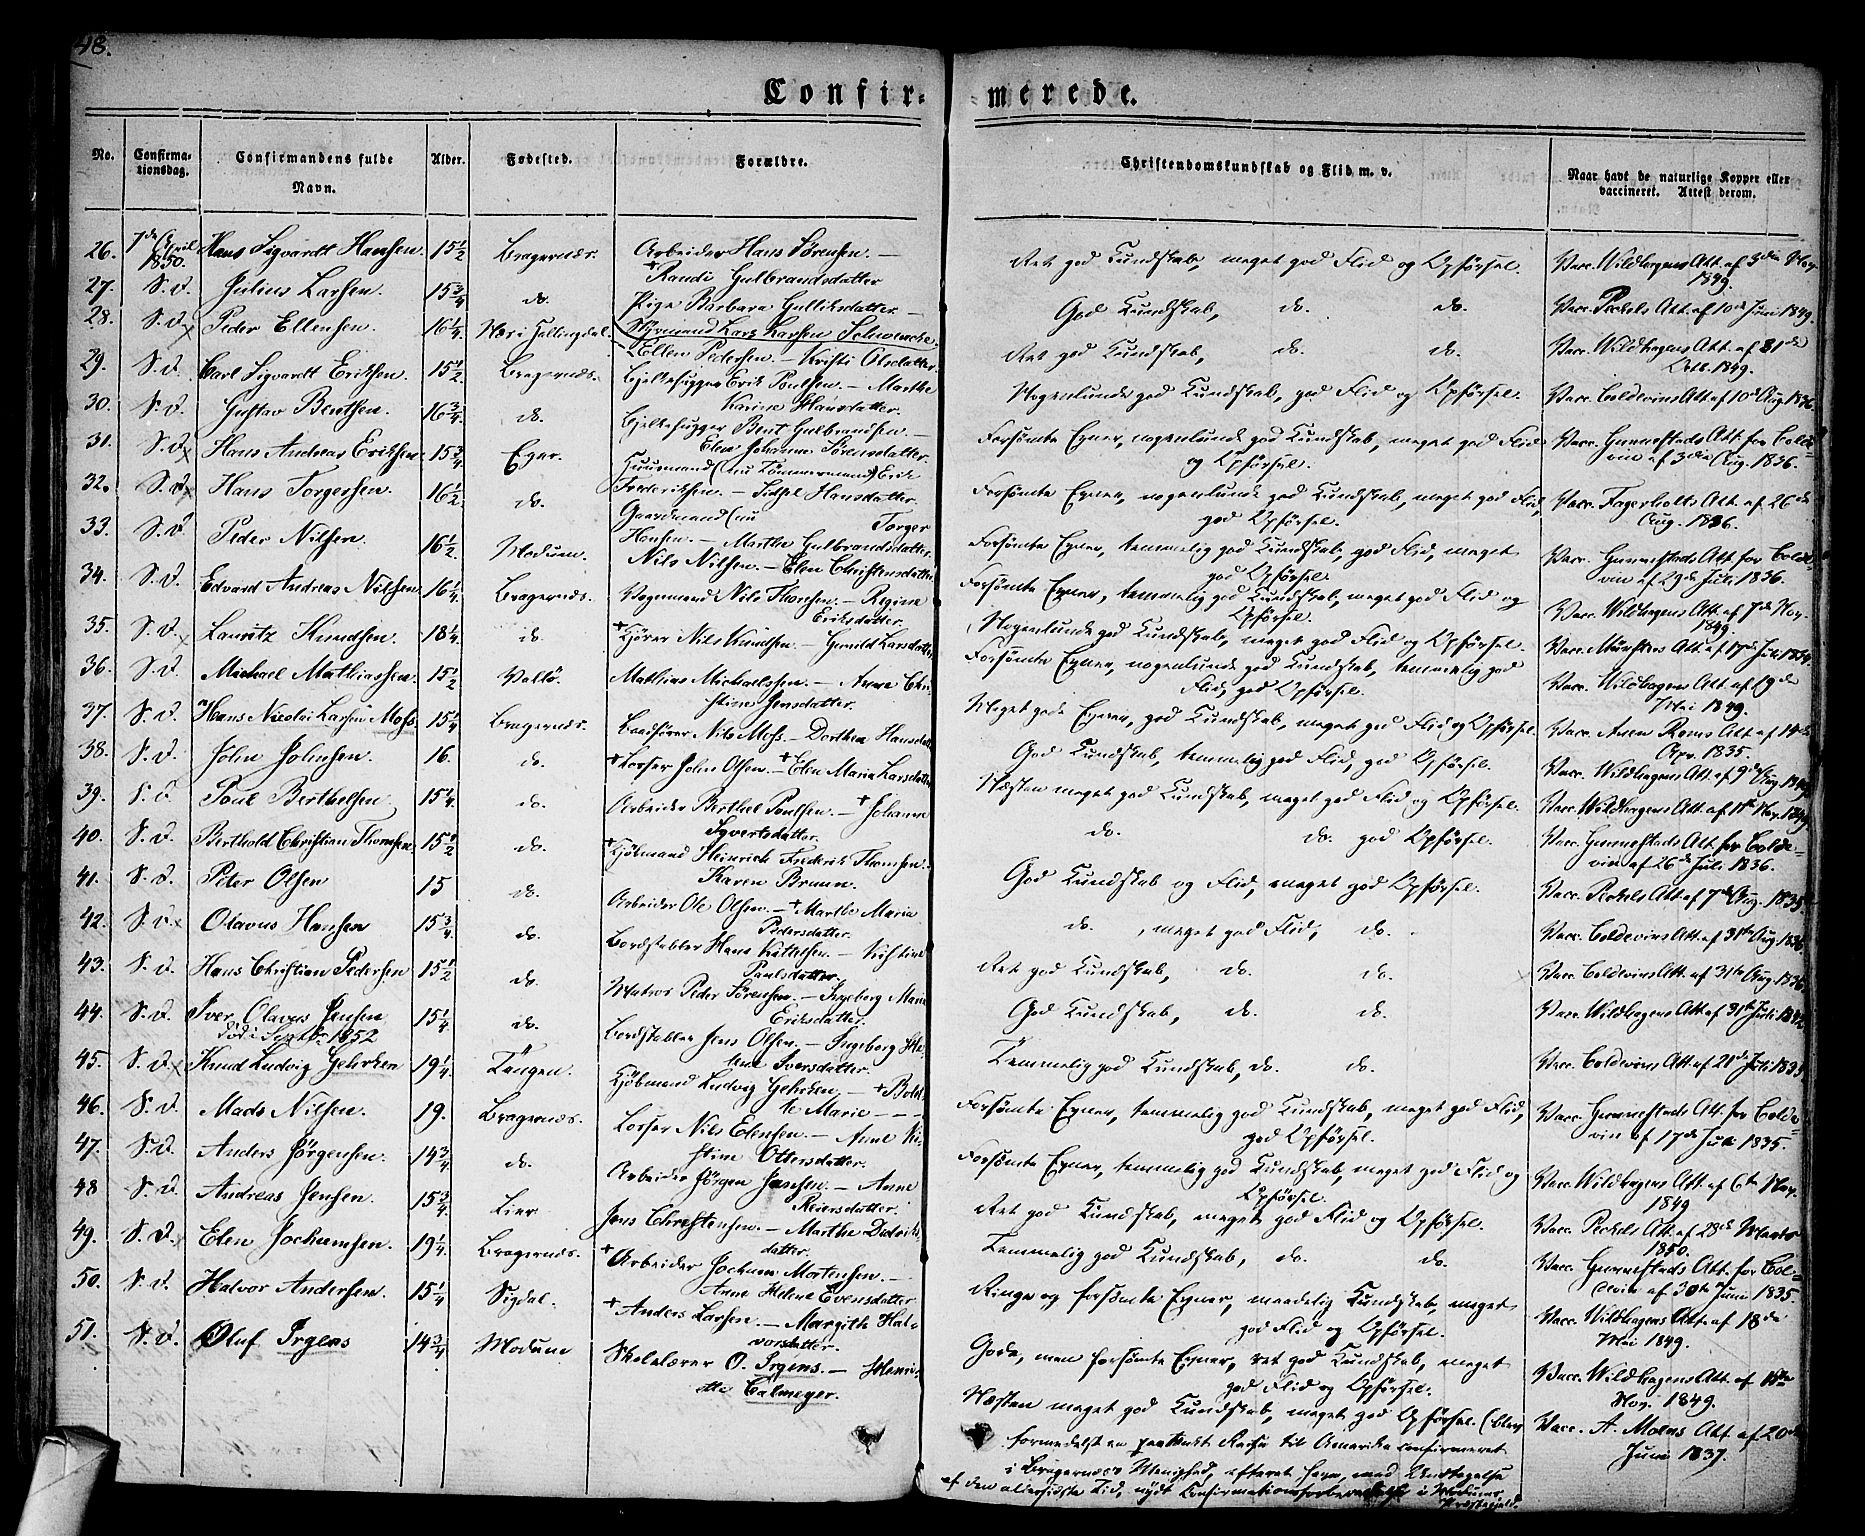 48.
Confirmerede.
No. Confirmationsdag. Confirmandens fulde Navn. Alder. Fødested. Forældre. Christendomskundskab og Flid m. v. Naar havt de naturlige Kopper eller vaccineret. Attest derom.
26. 7de April 1850. Hans Sigvardt Hansen. 15 1/2 Bragernæs. Arbeider Hans Sørensen. — + Randi Gulbrandsdatter Ret god Kundskab, meget god Flid og Opførsel. Vacc. Wildhagens Att. af 3die Nov. 1849.
27. S. d. Julius Larsen. 15 3/4 do. Pige Barbara Gulliksdatter — Styrmand Lars Larsen Schwencke. God Kundskab, do. do. Vacc. Peckels Att. af 10de Juni 1849.
28. S. d. Peder Ellensen. 16 1/4 Næs i Hallingdal. Ellen Pedersen. — Kristi Olsdatter. Ret god Kundskab, do. do. Vacc. Wildhagens Att. af 31de Octb. 1849.
29. S. d. Carl Sigvardt Eriksen. 15 1/2 Bragernæs. Bjelkehugger Erik Poulsen. — Marthe Karine Hansdatter. Nogenlunde god Kundskab, god Flid og Opførsel. Vacc. Coldevins Att. af 10de Aug. 1836.
30. S. d. Gustav Bentsen. 16 3/4 do. Bjelkehugger Bent Gulbrandsen. — Elen Johanne Sørensdatter. Forsømte Evner, nogenlunde god Kundskab, meget god Flid og Opførsel. Vacc. Gunnestads Att. for Coldevin af 3die Aug. 1836.
31. S. d. Hans Andreas Eriksen. 15 3/4 Eger. Huusmand (nu Tømmermand) Erik Frederiksen. — Sidsel Hansdatter. Forsømte Evner, nogenlunde god Kundskab, meget god Flid, god Opførsel. Vacc. Fagerholts Att. af 26de Aug. 1836.
32. S. d. Hans Torgersen. 16 1/2 do. Gaardmand (nu Torger Hansen. — Marthe Gulbrandsdatter. Forsømte Evner, temmelig god Kundskab, god Flid, meget god Opførsel. Vacc. Gunnestads Att. for Coldevin af 29de Juli 1836.
33. S. d. Peder Nilsen. 16 1/2 Modum. Nils Nilsen. — Elen Christensdatter. Forsømte Evner, temmelig god Kundskab, meget god Flid og Opførsel. Vacc. Wildhagens Att. af 7de Nov. 1849.
34. S. d. Edvard Andreas Nilsen. 16 1/4 Bragernæs. Vognmand Nils Thorsen. — Regine Eriksdatter. Nogenlunde god Kundskab, meget god Flid og Opførsel. Vacc. Münsters Att. af 17de Juli 1834.
35. S. d. Lauritz Knudsen. 18 1/4 do. + Kjører Nils Knudsen. — Gunild Larsdatter. Forsømte Evner, nogenlunde god Kundskab, temmelig god Flid, god Opførsel. Vacc. Wildhagens Att. af 19de Mai 1849.
36. S. d. Michael Mathiassen. 15 1/2 Vallø. Mathias Michaelsen. — Anne Christine Jensdatter. Meget gode Evner, god Kundskab, meget god Flid og Opførsel. Vacc. Anen Roms Att. af 14de Apr. 1835.
37. S. d. Hans Nicolai Larsen Moss. 15 1/4 Bragernæs. Nils Moss. — Dorthea Hansdatter. God Kundskab, temmelig god Flid, god Opførsel. Vacc. Wildhagens Att. af 9de Aug. 1849.
38. S. d. John Johnsen. 16. do. + Losser John Olsen. — + Elen Maria Larsdatter. Næsten meget god Kundskab, meget god Flid og Opførsel. Vacc. Wildhagens Att. af 1ste Nov. 1849.
39. S. d. Poul Berthelsen. 15 1/4. do. Arbeider Berthel Poulsen. — + Johanne Syvertsdatter. do. do. god Opførsel. Vacc. Gunnestads Att. for Coldevin af 26de Juli 1836.
40. S. d. Berthold Christian Thomsen. 15 1/2 do. + Kjøbmand Heinrich Frederik Thomsen. — Karen Bruun. God Kundskab og Flid, meget god Opførsel. Vacc. Peckels Att. af 7de Aug. 1835.
41. S. d. Peter Olsen 15 do. Arbeider Ole Olsen. — + Marthe Maria Pedersdatter. do. , meget god Flid, do. Vacc. Coldevins Att. af 31te Aug. 1836.
42. S. d. Olavus Hansen 15 3/4. do. Bordstabler Hans Kittelsen. — Kistine Paulsdatter. Ret god Kundskab, do. do. Vacc. Coldevins Att. af 31te Aug. 1836.
43. S. d. Hans Christian Pedersen 15 1/2 do. Matros Peder Sørensen. — Ingeborg Marie Eriksdatter. God Kundskab, do. do. Vacc. Wildhagens Att. af 31te Juli 1842.
44. S. d. Iver Olavus Jensen død i Septbr. 1852 15 1/4 do. Bordstabler Jens Olsen. — Ingeborg Helene Iversdatter. Temmelig god Kundskab, do. do. Vacc. Coldevins Att. af 21de Juli 1835.
45. S. d. Knud Ludvig Gehrken 19 1/4. Tangen. Kjøbmand Ludvig Gehrken — + Bolette Marie — — — Forsømte Evner, temmelig god Kundskab, meget god Flid, god Opførsel. Vacc. Gunnestads Att. for Coldevin af 17de Juli 1835.
46. S. d. Mads Nilsen. 19. Bragernæs. Losser Nils Elensen. — Anne Kistine Ottersdatter. Forsømte Evner, temmelig god Kundskab, meget god Flid og Opførsel. Vacc. Wildhagens Att. af 6te Nov. 1849
47. S. d. Anders Jørgensen. 14 3/4. do. Arbeider Jørgen Jensen. — Anne Reiersdatter. Ret god Kundskab, meget god Flid og Opførsel. Vacc. Peckels Att. af 28de Marts 1850.
48 S. d. Andreas Jensen. 15 3/4. Lier Jens Christensen. — Marthe Dideriksdatter. Temmelig god Kundskab, do. do. Vacc. Gunnestads Att. for Coldevin af 30te Juni 1835.
49. S. d. Elen Jochumsen. 19 1/4. Bragernæs. + Arbeider Jochum Mortensen. — Anne Helene Evensdatter Ringe og forsømte Evner, maadelig Kundskab, meget god Flid og Opførsel. Vacc. Wildhagens Att. af 18de Mai 1849.
50. S. d. Halvor Andersen. 15 1/4 Sigdal. + Anders Larsen. — Margithe Halvorsdatter. Gode, men forsømte Evner, ret god Kundskab, meget god Flid og Opførsel. Vacc. Wildhagens Att. af 11te Nov. 1849.
51. S. d. Oluf Irgens 14 3/4. Modum Skolelærer O. Irgens. — Henriette Calmeyer. Næsten meget god Kundskab, meget god Opførsel. (blev Vacc. A. Moens Att. af 20de Juni 1837.
formedelst en paatænkt Reise til Amerika confirmeret
i Bragernæs Menighed, efterat have, med Undtagelse
af den allersidste Tid, nydt Confirmationsforberedelse i Modums Præstegjeld.